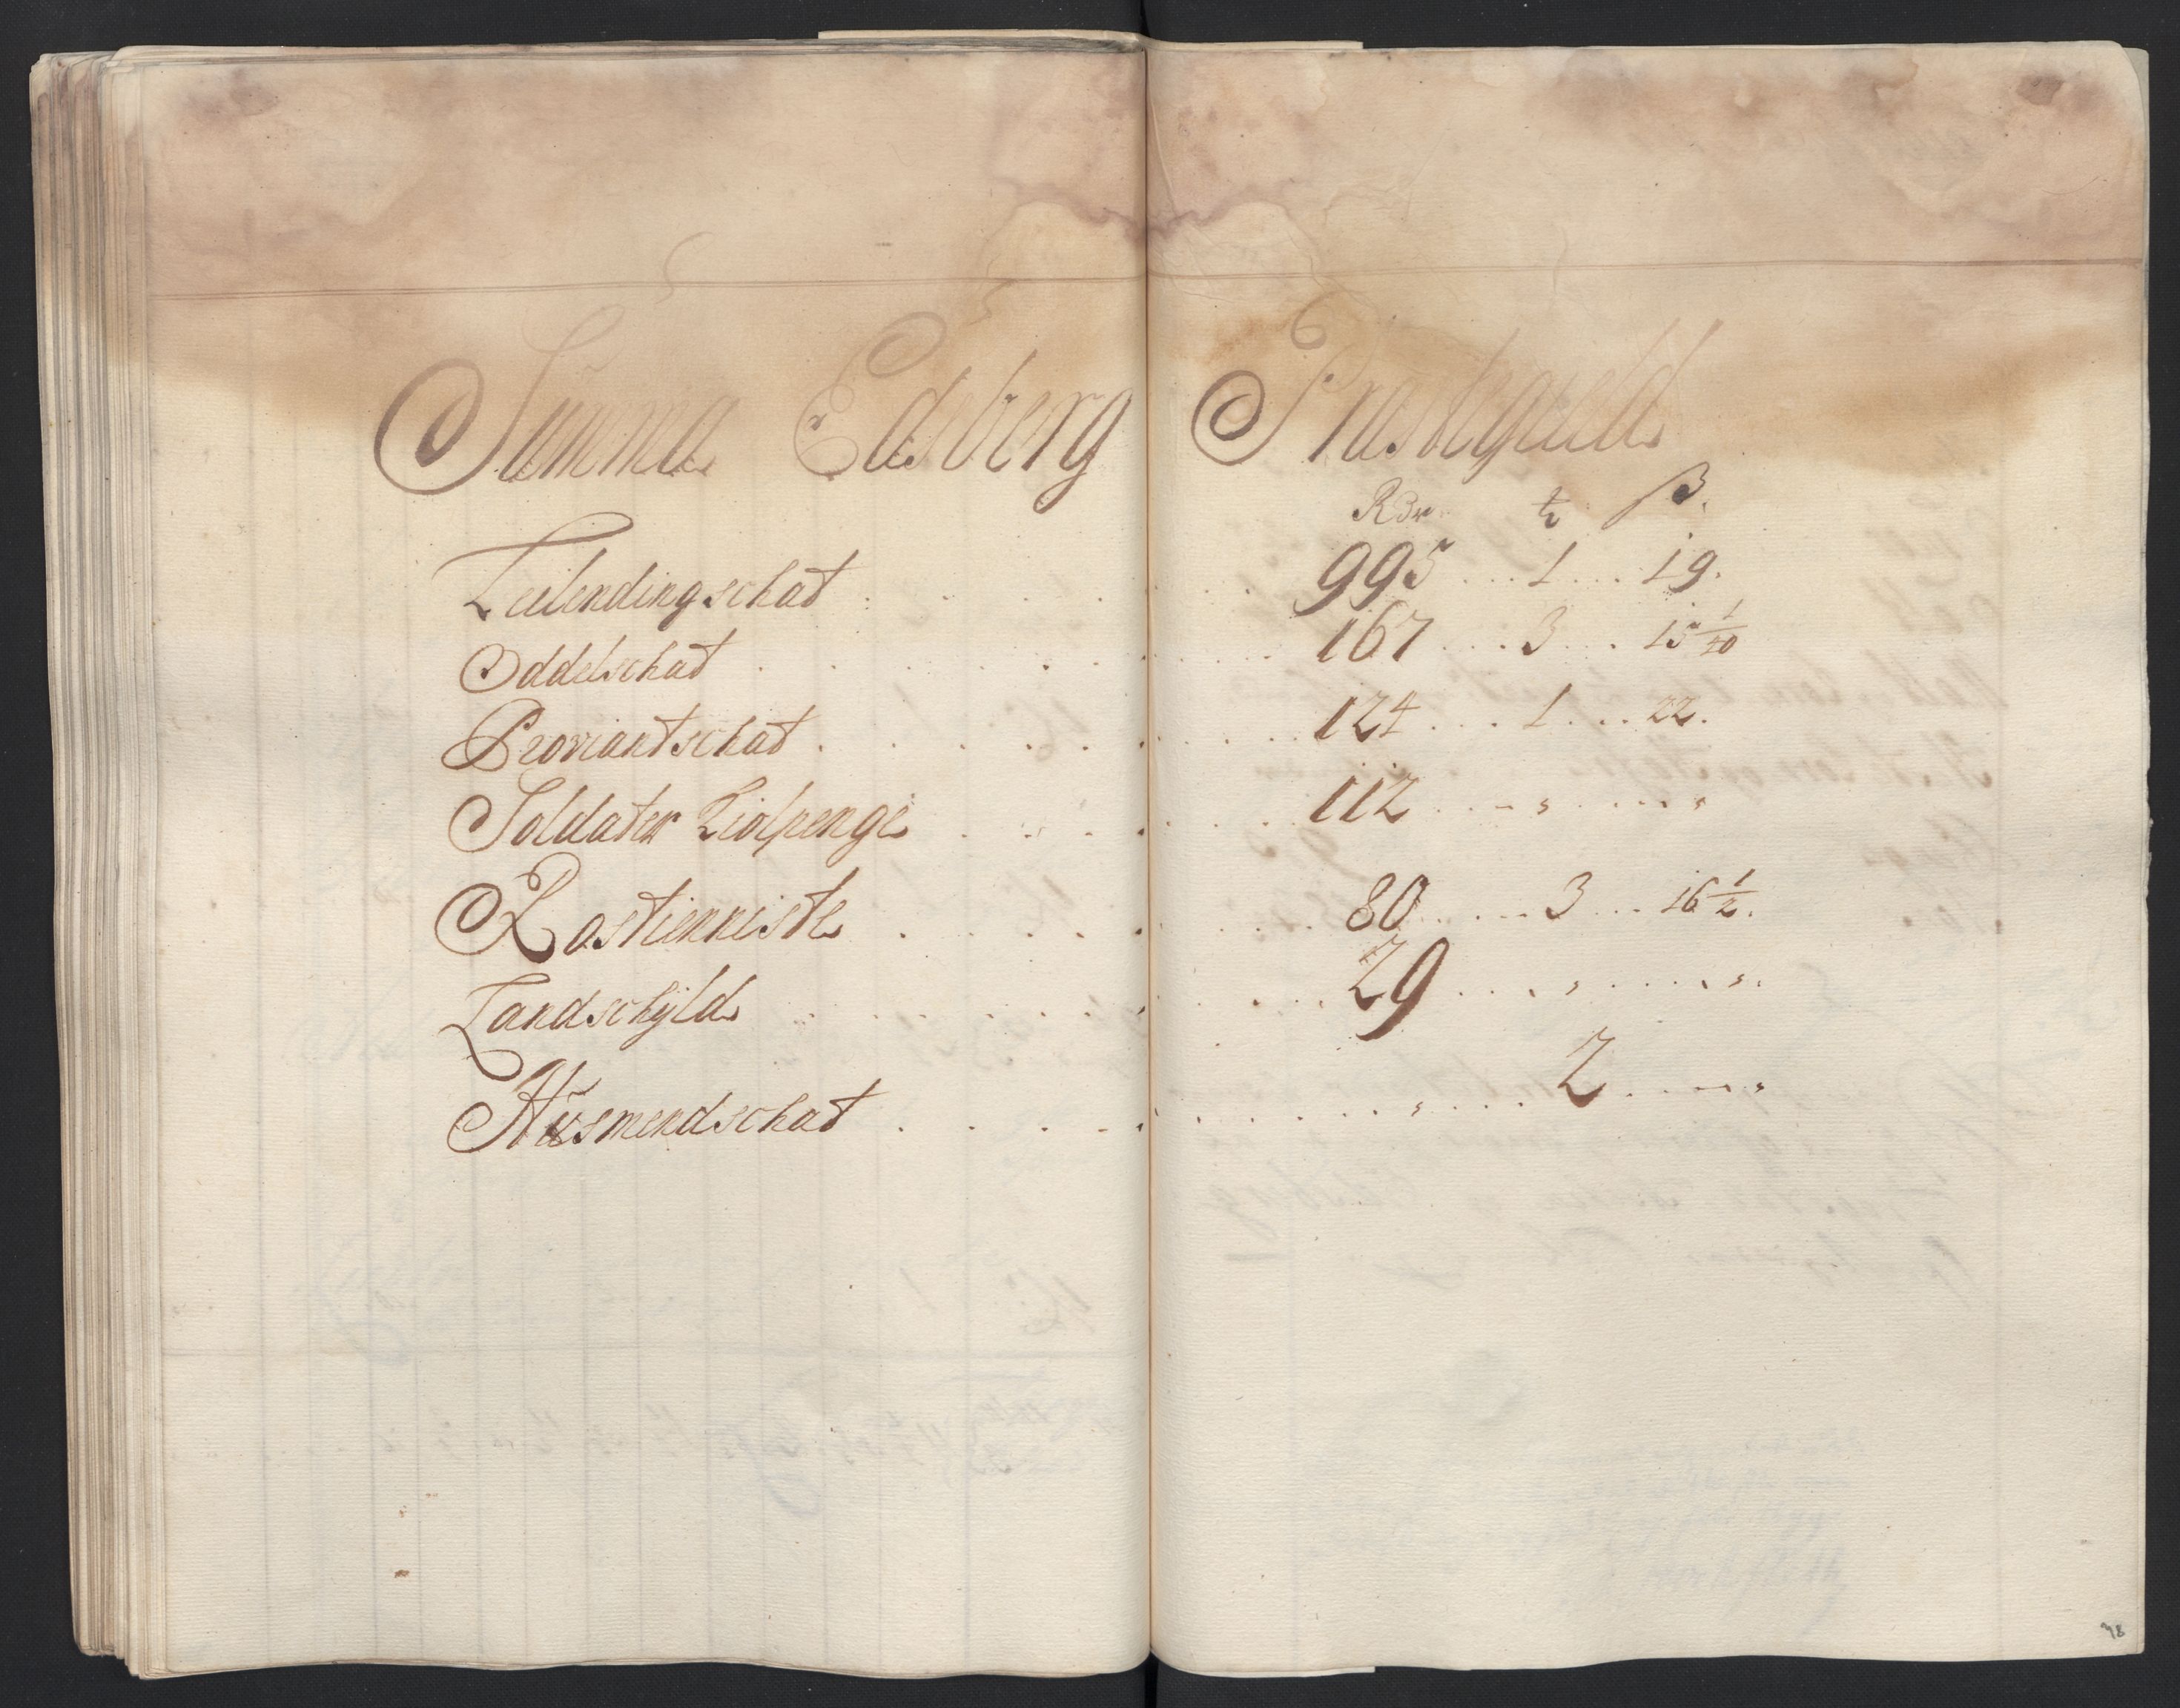 Summa Edsberg Præstegield
Rdr ꝉ ß.
Leilendingschat . . . . . . 995 ... 1 ... 19.
Oddelschat . . . . . . 167 ... 3 ... 15 1/40
Proviantschat . . . . . . 124 ... 1 ... 22.
Soldater Kiolpenge . . . . . . 112 ... " ... "
Rostienniste . . . . . . 80 ... 3 ... 16 1/2.
Landschyld . . . . . . 29 ... " ... ".
Husmendschat . . . . . . " ... 2 ... "
98